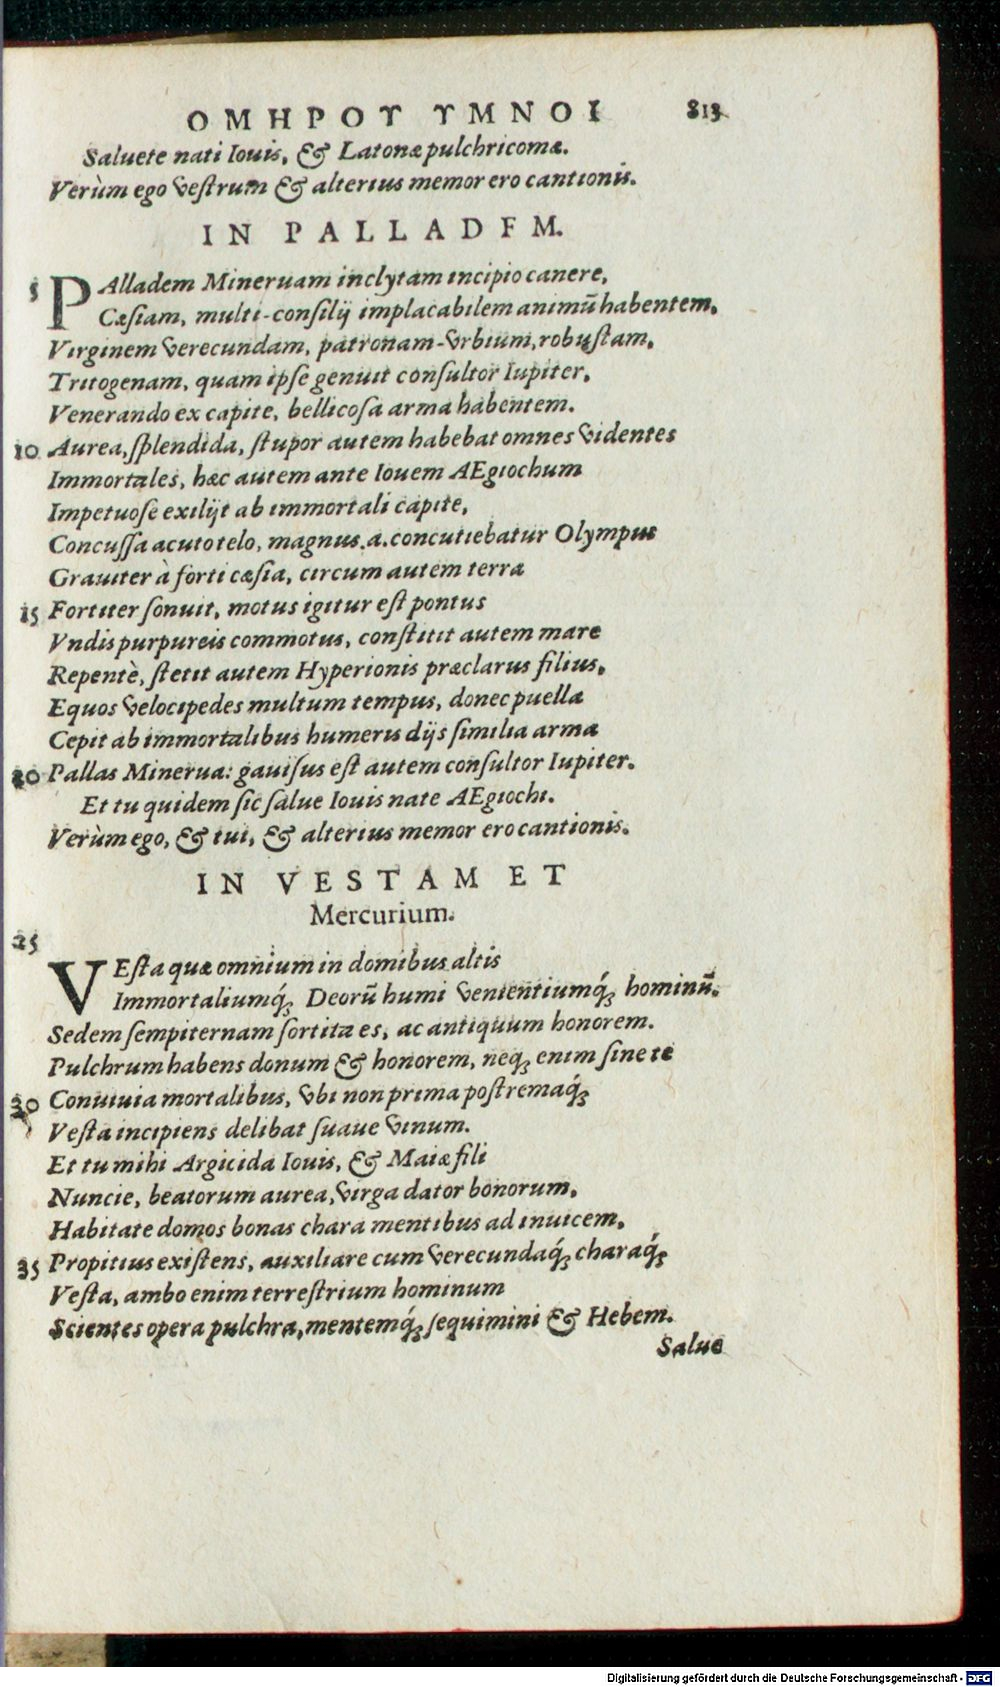 ΟΜΗΡΟΥ ΥΜΝΟΙ 813
Saluete nati Iouis, & Latonæ pulchricomæ.
Verùm ego vestrum & alterius memor ero cantionis.
IN PALLADEM.
5 PAlladem Mineruam inclytam incipio canere,
Cæsiam, multi-consilij implacabilem animū habentem,
Virginem verecundam, patronam-vrbium, robustam,
Tritogenam, quam ipse genuit consultor Iupiter,
Venerando ex capite, bellicosa arma habentem.
10 Aurea, splendida, stupor autem habebat omnes videntes
Immortales, hæc autem ante Iouem AEgiochum
Impetuose exilijt ab immortali capite,
Concussa acuto telo, magnus.a.concutiebatur Olympus
Grauiter à forti cæsia, circum autem terra
15 Fortiter sonuit, motus igitur est pontus
Vndis purpureis commotus, constitit autem mare
Repentè, stetit autem Hyperionis præclarus filius,
Equos velocipedes multum tempus, donec puella
Cepit ab immortalibus humeris dijs similia arma
20 Pallas Minerua: gauisus est autem consultor Iupiter.
Et tu quidem sic salue Iouis nate AEgiochi.
Verùm ego, & tui, & alterius memor ero cantionis.
IN VESTAM ET
Mercurium.
25
VEsta quæ omnium in domibus altis
Immortaliumq́; Deorū humi venientiumq́; hominū.
Sedem sempiternam sortita es, ac antiquum honorem.
Pulchrum habens donum & honorem, neq; enim sine te
30 Conuiuia mortalibus, vbi non prima postremaq́;
Vesta incipiens delibat suaue vinum.
Et tu mihi Argicida Iouis, & Maiæ fili
Nuncie, beatorum aurea, virga dator bonorum,
Habitate domos bonas chara mentibus ad inuicem,
35 Propitius existens, auxiliare cum verecundaq́; charaq́;
Vesta, ambo enim terrestrium hominum
Scientes opera pulchra, mentemq́; sequimini & Hebem.
Salue
Digitalisierung gefördert durch die Deutsche Forschungsgemeinschaft - DFG